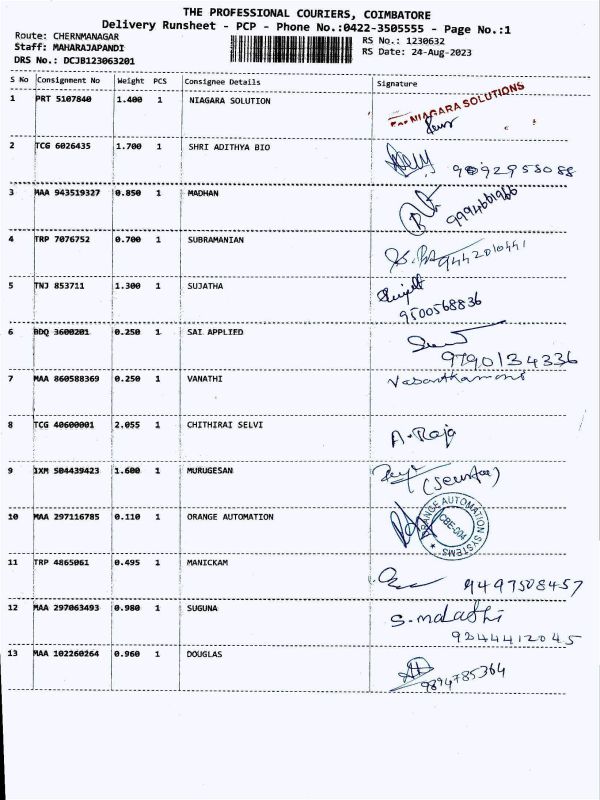 THE PROFESSIONAL COURIERS, COIMBATORE
Delivery Runsheet - PCP - Phone No.:0422-3505555 - Page No.:1
Route: CHERNMANAGAR
Staff: MAHARAJAPANDI
DRS No.: DCJB123063201
RS No.: 1230632
RS Date: 24-Aug-2023
S No Consignment No Weight PCS Consignee Details Signature
1 PRT 5107840 1.400 1 NIAGARA SOLUTION For NIAGARA SOLUTIONS
2 TCG 6026435 1.700 1 SHRI ADITHYA BIO 9092958088
3 MAA 943519327 0.850 1 MADHAN 9994601966
4 TRP 7076752 0.700 1 SUBRAMANIAN 9442010441
5 TNJ 853711 1.300 1 SUJATHA
9500568836
6 BDQ 3600201 0.250 1 SAI APPLIED
9790134336
7 MAA 860588369 0.250 1 VANATHI
8 TCG 40600001 2.055 1 CHITHIRAI SELVI A. Raja
9 IXM 504439423 1.600 1 MURUGESAN
10 MAA 297116785 0.110 1 ORANGE AUTOMATION ORANGE AUTOMATION SYSTEMS CBE-004
11 TRP 4865061 0.495 1 MANICKAM 9497508457
12 MAA 297063493 0.980 1 SUGUNA S. malathi
9244412045
13 MAA 102260264 0.960 1 DOUGLAS
9894785364